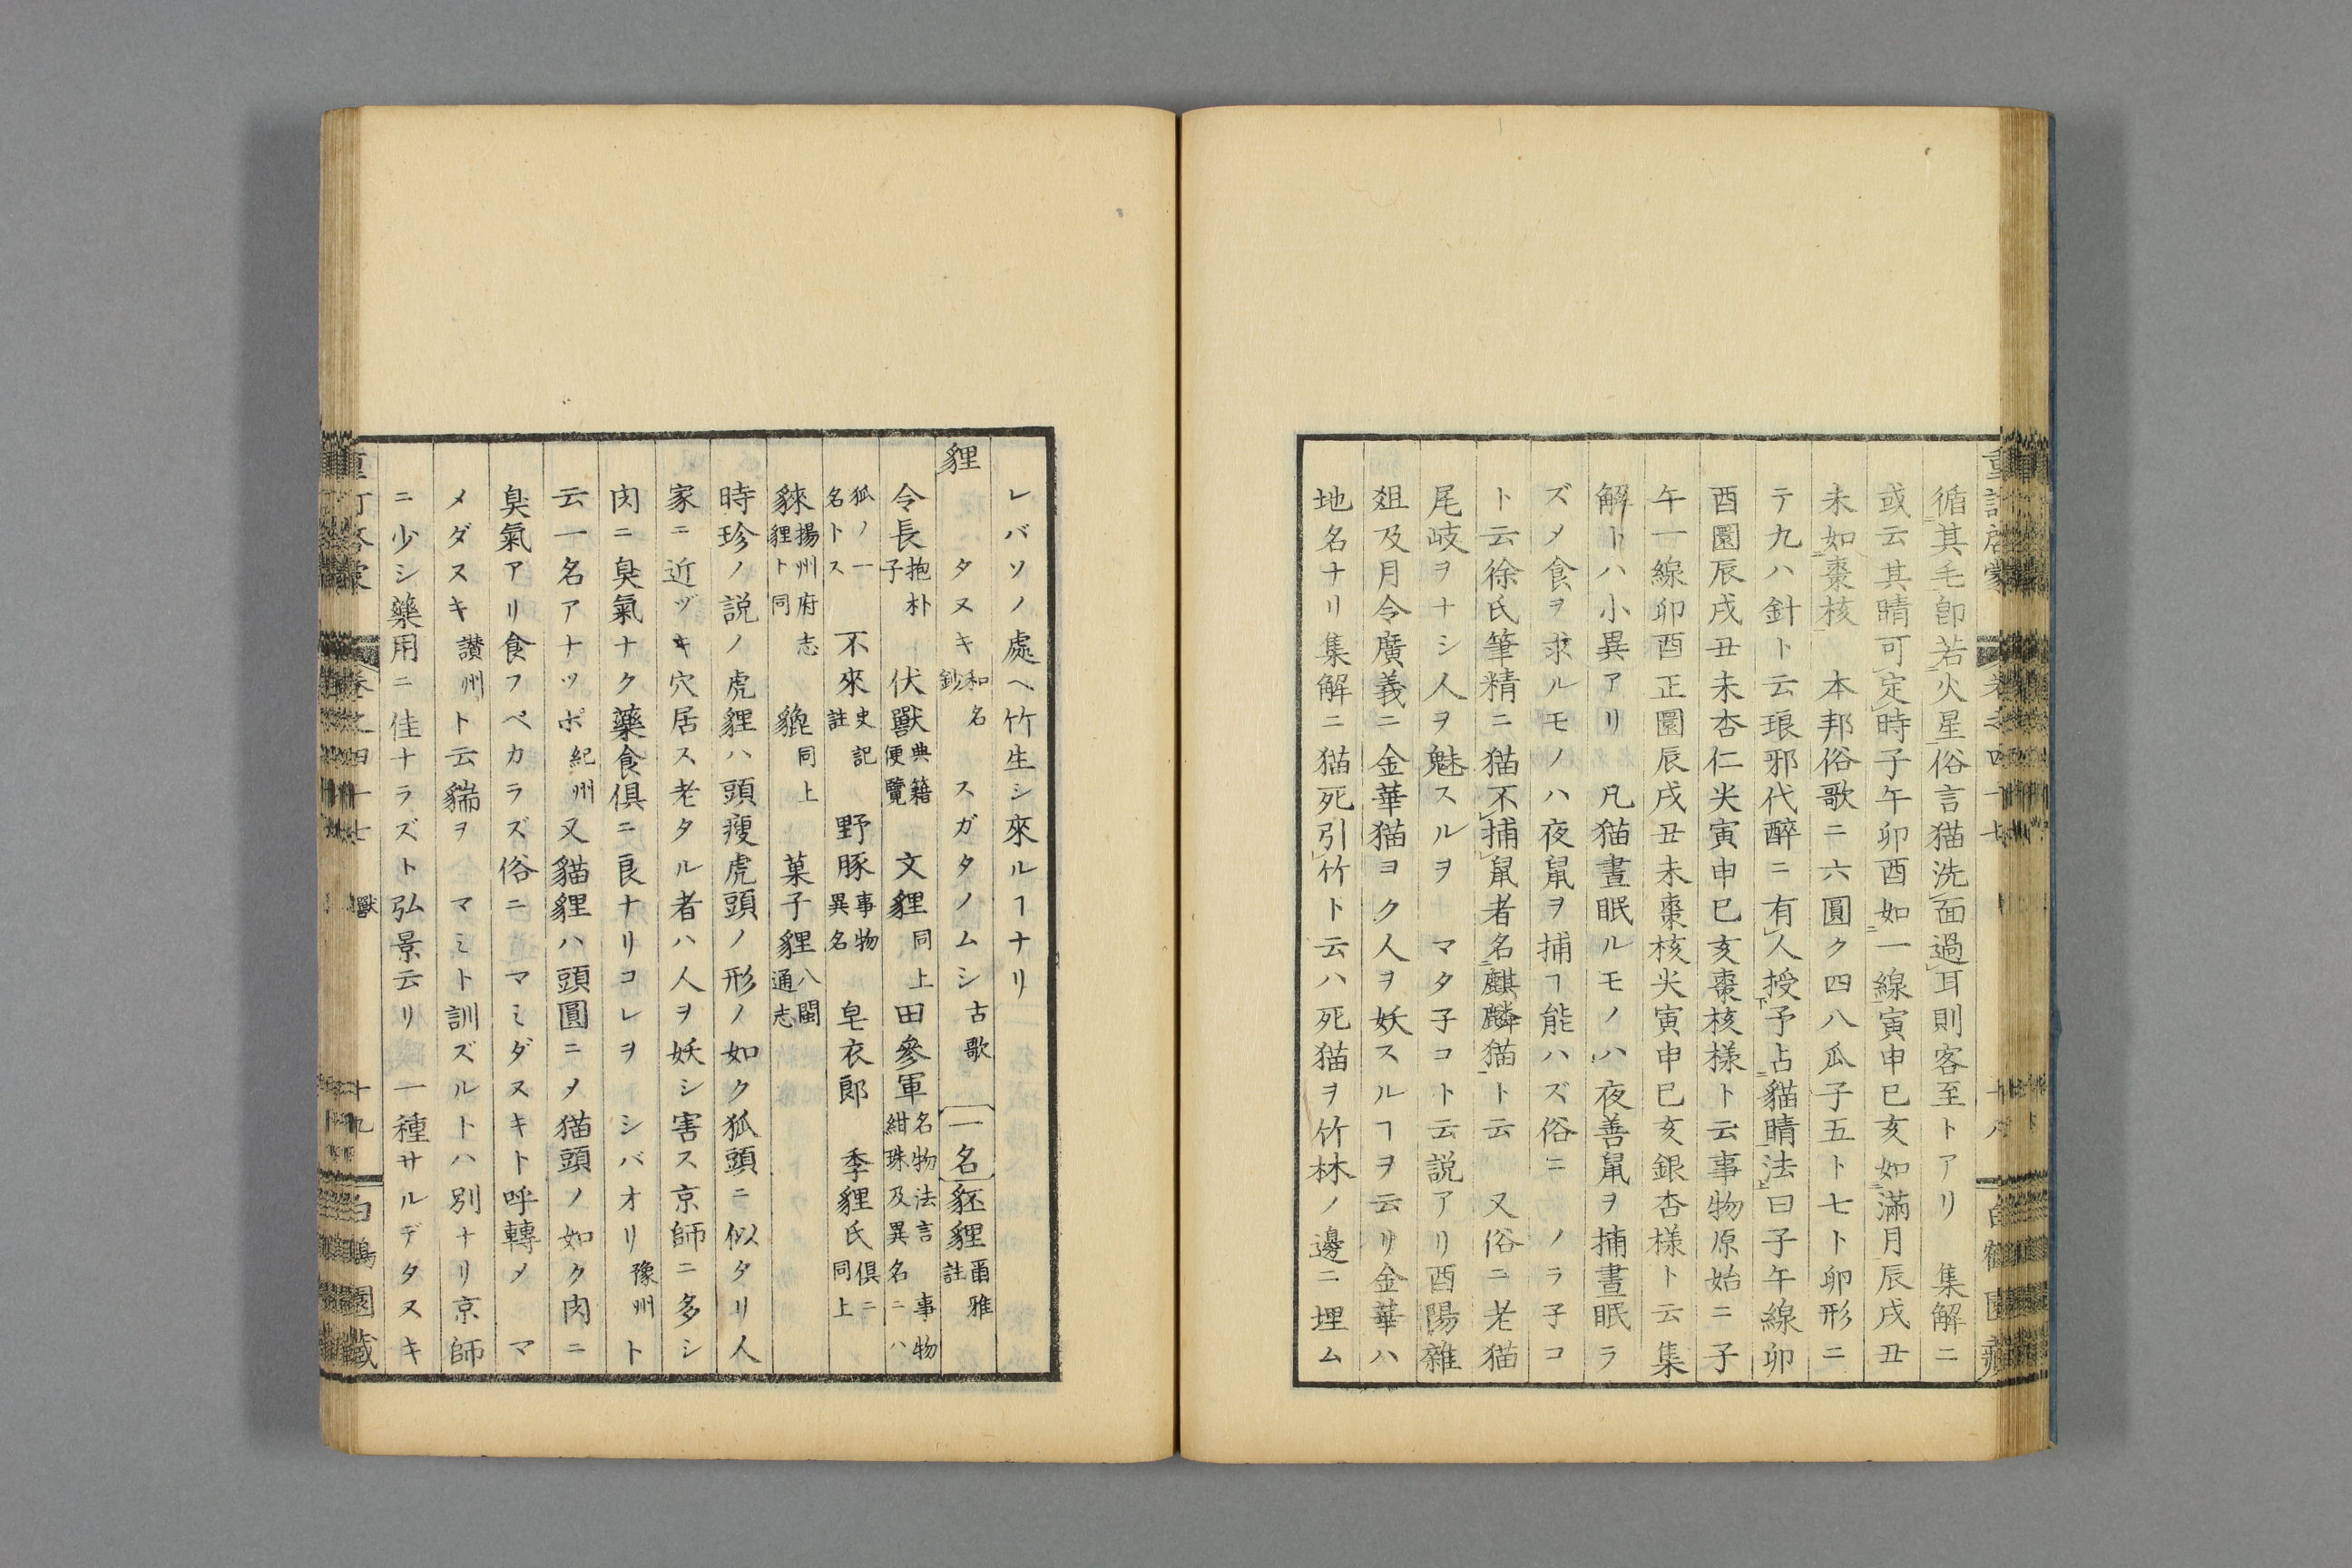 循其毛即若火星俗言猫洗面過耳則客至トアリ　集解ニ
或云其睛可定時子午卯酉如一線寅申巳亥如滿月辰戌丑
未如棗核　本邦俗歌ニ六圓ク四八瓜子五ト七ト卵形ニ
テ九ハ針ト云琅邪代醉ニ有人授予占貓睛法曰子午線卯
酉圜辰戌丑未杏仁尖寅申巳亥棗核様ト云事物原始ニ子
午一線卯酉正圜辰戌丑未棗核尖寅申巳亥銀杏様ト云集
解トハ小異アリ　凡猫晝眠ルモノハ夜善鼠ヲ捕晝眠ラ
ズメ食ヲ求ルモノハ夜鼠ヲ捕ヿ能ハズ俗ニノラ子コ
ト云徐氏筆精ニ猫不捕鼠者名麒麟猫ト云　又俗ニ老猫
尾岐ヲナシ人ヲ魅スルヲ　マタ子コト云説アリ酉陽雜
爼及月令廣義ニ金華猫ヨク人ヲ妖スルヿヲ云リ金華ハ
地名ナリ集解ニ猫死引竹ト云ハ死猫ヲ竹林ノ邊ニ埋ム
レバソノ處ヘ竹生シ來ルヿナリ
貍　タヌキ和名鈔　スガタノムシ古歌　一名豾貍爾雅註
令長抱朴子　伏獸典籍便覽　文貍同上　田參軍名物法言　事物紺珠及異名ニハ
狐ノ一名トス　不來史記註　野豚事物異名　皂衣郎　季貍氏俱ニ同上
貅揚州府志貍ト同　貔同上　菓子貍八閩通志
時珍ノ説ノ虎貍ハ頭瘦虎頭ノ形ノ如ク狐頭ニ似タリ人
家ニ近ヅキ穴居ス老タル者ハ人ヲ妖シ害ス京師ニ多シ
肉ニ臭氣ナク藥食俱ニ良ナリコレヲ　シバオリ豫州ト
云一名アナツポ紀州又貓貍ハ頭圓ニヲ猫頭ノ如ク肉ニ
臭氣アリ食フベカラズ俗ニ　マミダヌキト呼轉メ　マ
メダスキ讃州ト云貒ヲ　マミト訓ズルトハ別ナリ京師
ニ少シ藥用ニ佳ナラズト弘景云リ　一種サルデタスキ